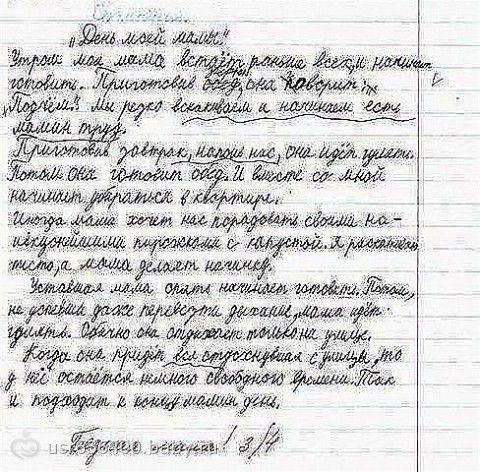 Сочинение.
„День моей мамы"
Утром моя мама встаёт раньше всех, и начинает
готовить. Приготовив обед, она говорит:
„Подъём". Мы резко вскакиваем и начинаем есть
мамин труд.
Приготовив завтрак, напоив нас, она идёт гулять.
Потом она готовит обед. И вместе со мной
начинает убраться в квартире.
Иногда мама хочет нас порадовать своими на-
ивкуснейшими пирожками с капустой. Я раскатываю
тесто, а мама делает начинку.
Уставшая мама опять начинает готовить. Потом,
не успевши даже перевезти дыхание, мама идёт
гулять. Обычно она отдыхает только на улице.
Когда она придёт вся отдохнувшая с улицы, то
у неё остаётся немного свободного времени. Так
и подходит к концу мамин день.
Бедная мама! 3/4